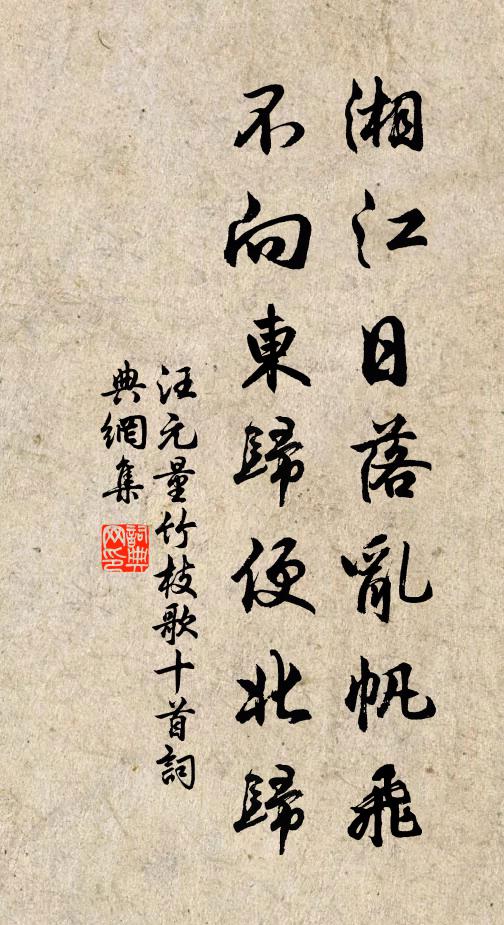 湘江日落亂帆飛
不向東歸便北歸
汪元量竹枝歌十首詞
典網集
詞典
网印